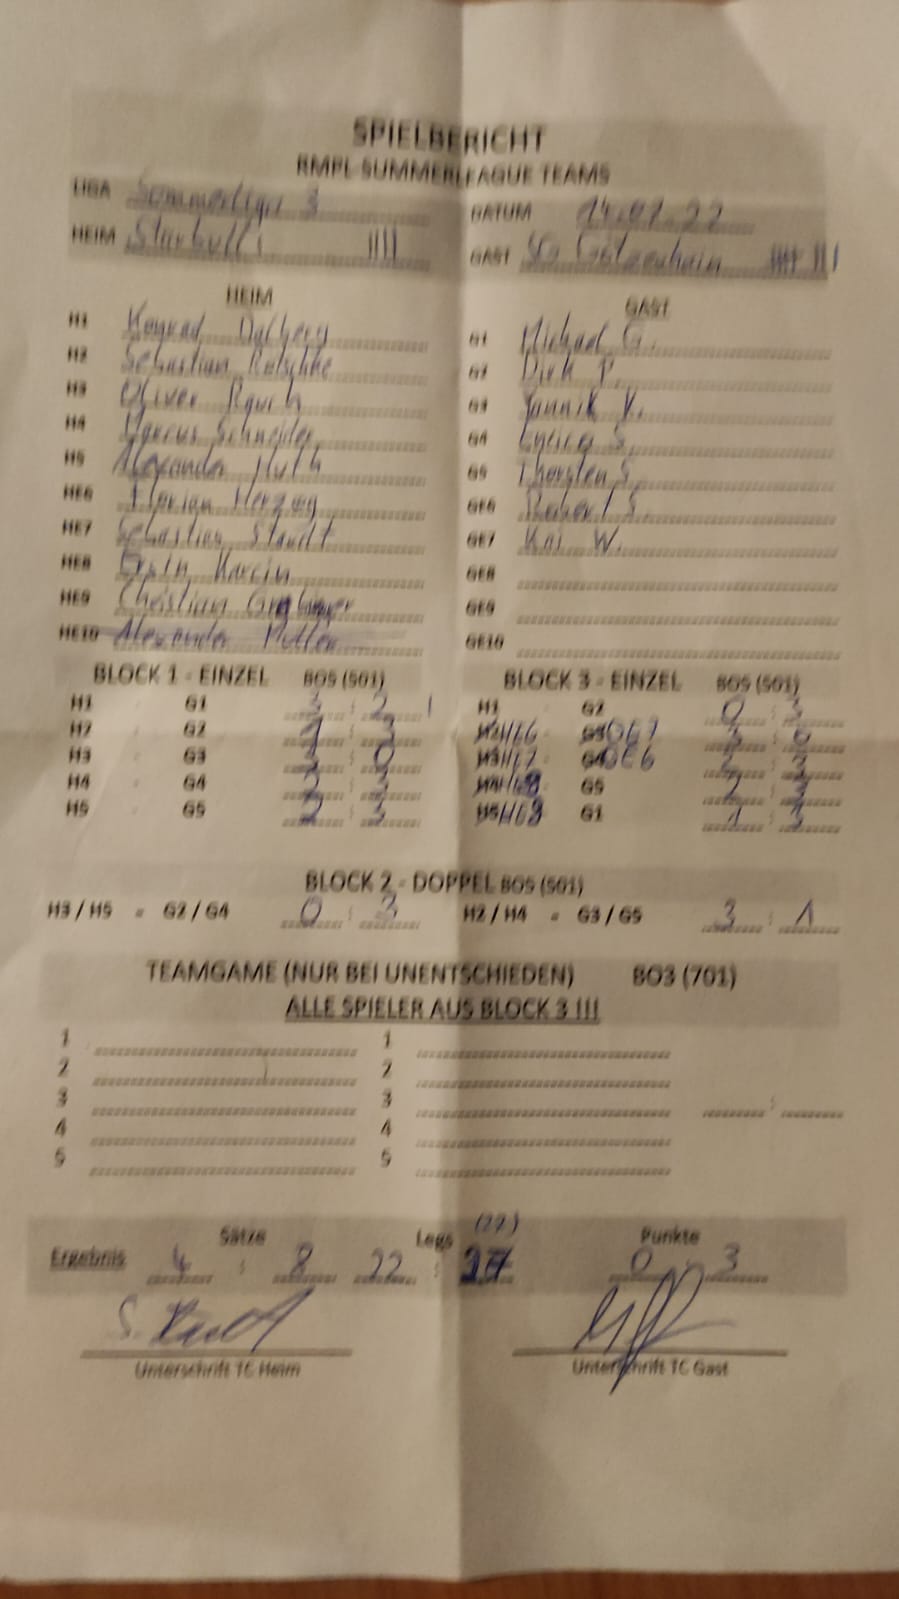 SPIELBERICHT
RMPL SUMMERLEAGUE TEAMS
LIGA Sommerliga 3 DATUM 14.07.22
HEIM Starbulls |||| GAST SG Götzenhain |||| |||
HEIM GAST
H1 Konrad Dalberg G1 Michael G.
H2 Sebastian G2 Dirk P.
H3 Oliver Rauch G3 Jannik K.
H4 Marcus Schneider G4 S.
H5 Alexander Huth G5 Thorsten S.
HE6 Florian Herzog GE6 Robert S.
HE7 Sebastian Staudt GE7 Kai W.
HE8 Erwin Karcin GE8
HE9 Christian GE9
HE10 Alexander GE10
BLOCK 1 - EINZEL BO5 (501) BLOCK 3 - EINZEL BO5 (501)
H1 - G1 3 : 2 H1 - G2 0 : 3
H2 - G2 : 3 HE6 GE7 3 : 0
H3 - G3 3 : 0 HE7 GE6 2 : 3
H4 - G4 : 3 G5 2 : 3
H5 - G5 2 : 3 G1 1 : 3
BLOCK 2 - DOPPEL BO5 (501)
H3 / H5 - G2 / G4 0 : 3 H2 / H4 - G3 / G5 3 : 1
TEAMGAME (NUR BEI UNENTSCHIEDEN) BO3 (701)
ALLE SPIELER AUS BLOCK 3 !!!
1 1
2 2
3 3 :
4 4
5 5
Sätze Legs (27) Punkte
Ergebnis 4 : 8 22 : 27 0 : 3
Unterschrift TC Heim Unterschrift TC Gast